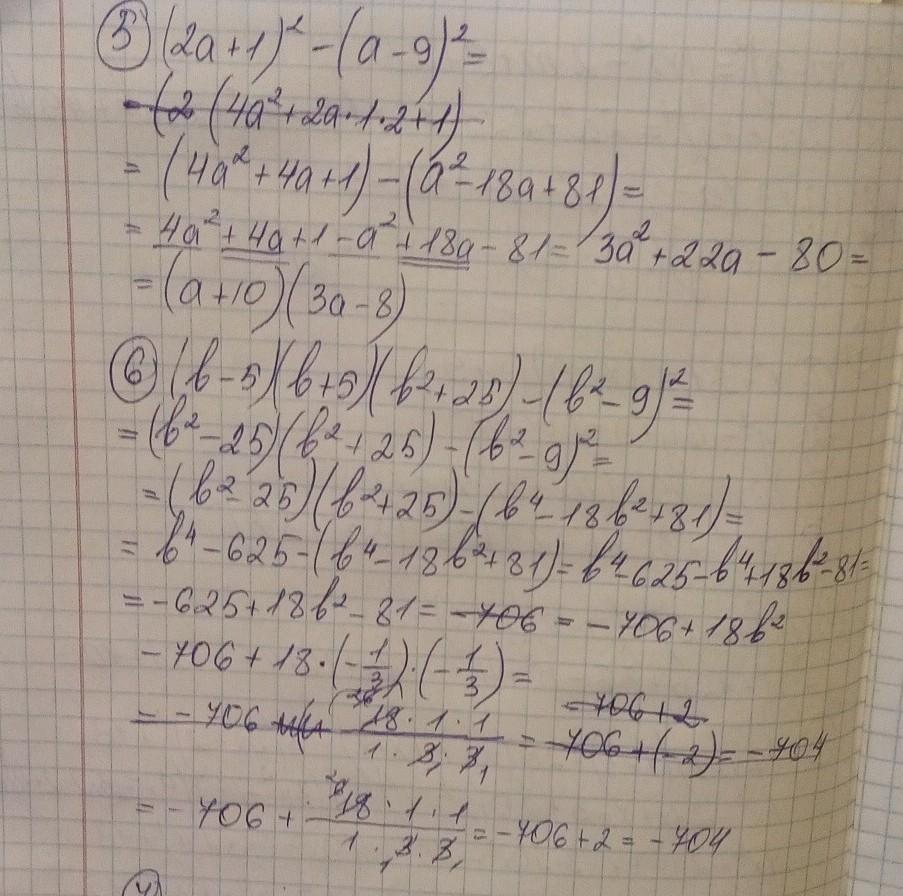 5 (2a+1)² - (a-9)² =
- (2 (4a² + 2a·1·2+1)
= (4a² + 4a + 1) - (a² - 18a + 81) =
= 4a² + 4a + 1 - a² + 18a - 81 = 3a² + 22a - 80 =
= (a + 10)(3a - 8)
6 (b - 5)(b + 5)(b² + 25) - (b² - 9)² =
= (b² - 25)(b² + 25) - (b² - 9)² =
= (b² - 25)(b² + 25) - (b⁴ - 18b² + 81) =
= b⁴ - 625 - (b⁴ - 18b² + 81) = b⁴ - 625 - b⁴ + 18b² - 81 =
= -625 + 18b² - 81 = -706 = -706 + 18b²
-706 + 18·(-1/3)·(-1/3) =
-706+2
= -706 18·1·1/1·3·3 = -706 + (-2) = -704
= -706 + 18·1·1/1·3·3 = -706 + 2 = -704